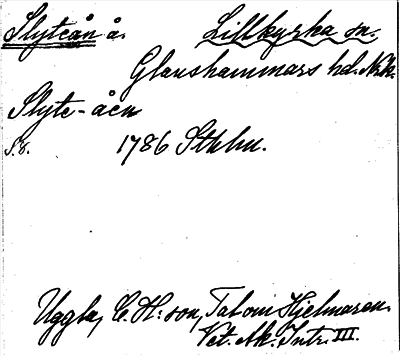 Slyteån å. Lillkyrka sn.
Glanshammars hd. Nrk.
Slyte-åen
S. 8. 1786 Sthlm.
Uggla, C. H:son, Tal om Hjelmaren.
Vet. Ak. Intr. III.